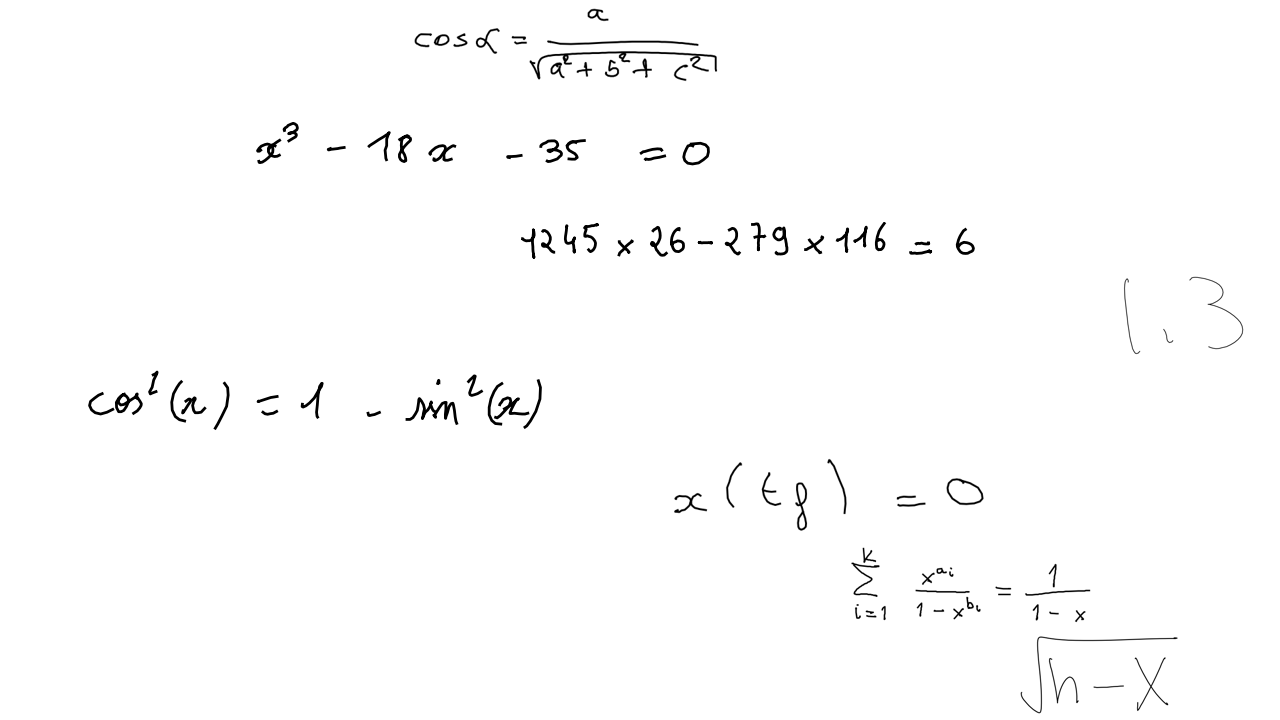 cos α = a / √(a² + b² + c²)
x³ - 18x - 35 = 0
1245 × 26 - 279 × 116 = 6
1.3
cos²(x) = 1 - sin²(x)
x(t_f) = 0
∑_{i=1}^{k} x^{a_i} / (1 - x^{b_i}) = 1 / (1 - x)
√(h - X)